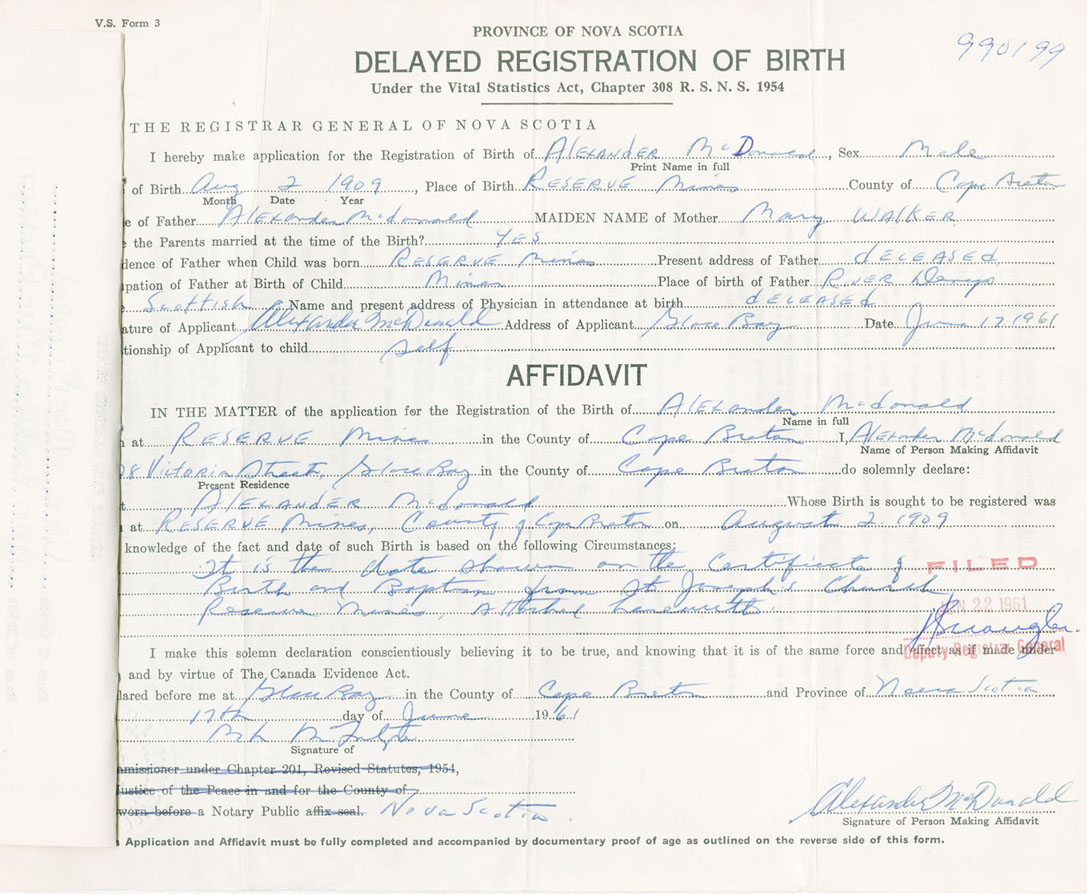 V.S. Form 3
PROVINCE OF NOVA SCOTIA
990199
DELAYED REGISTRATION OF BIRTH
Under the Vital Statistics Act, Chapter 308 R. S. N. S. 1954
THE REGISTRAR GENERAL OF NOVA SCOTIA
I hereby make application for the Registration of Birth of ALEXANDER McDonald, Sex Male
Print Name in full
of Birth Aug 2 1909, Place of Birth RESERVE Mines County of Cape Breton
Month Date Year
e of Father Alexander McDonald MAIDEN NAME of Mother Mary WALKER
e the Parents married at the time of the Birth? YES
dence of Father when Child was born RESERVE Mines Present address of Father deceased
pation of Father at Birth of Child Miner Place of birth of Father River Denys
Scottish Name and present address of Physician in attendance at birth deceased
ature of Applicant Alexander McDonald Address of Applicant Glace Bay Date June 17 1961
tionship of Applicant to child self
AFFIDAVIT
IN THE MATTER of the application for the Registration of the Birth of Alexander McDonald
Name in full
at RESERVE Mines in the County of Cape Breton I, Alexander McDonald
Name of Person Making Affidavit
8 Victoria Street, Glace Bay in the County of Cape Breton do solemnly declare:
Present Residence
t ALEXANDER McDonald Whose Birth is sought to be registered was
at RESERVE Mines, County of Cape Breton on August 2 1909
knowledge of the fact and date of such Birth is based on the following Circumstances:
It is the date shown on the Certificate of
FILED
Birth and Baptism from St Joseph's Church
Reserve Mines, attached herewith.
22 1961
Deputy Registrar General
I make this solemn declaration conscientiously believing it to be true, and knowing that it is of the same force and effect as if made under
and by virtue of The Canada Evidence Act.
lared before me at Glace Bay in the County of Cape Breton and Province of Nova Scotia
17th day of June 1961
Signature of
mmissioner under Chapter 201, Revised Statutes, 1954,
ustice of the Peace in and for the County of
worn before a Notary Public affix seal. Nova Scotia
Alexander McDonald
Signature of Person Making Affidavit
Application and Affidavit must be fully completed and accompanied by documentary proof of age as outlined on the reverse side of this form.